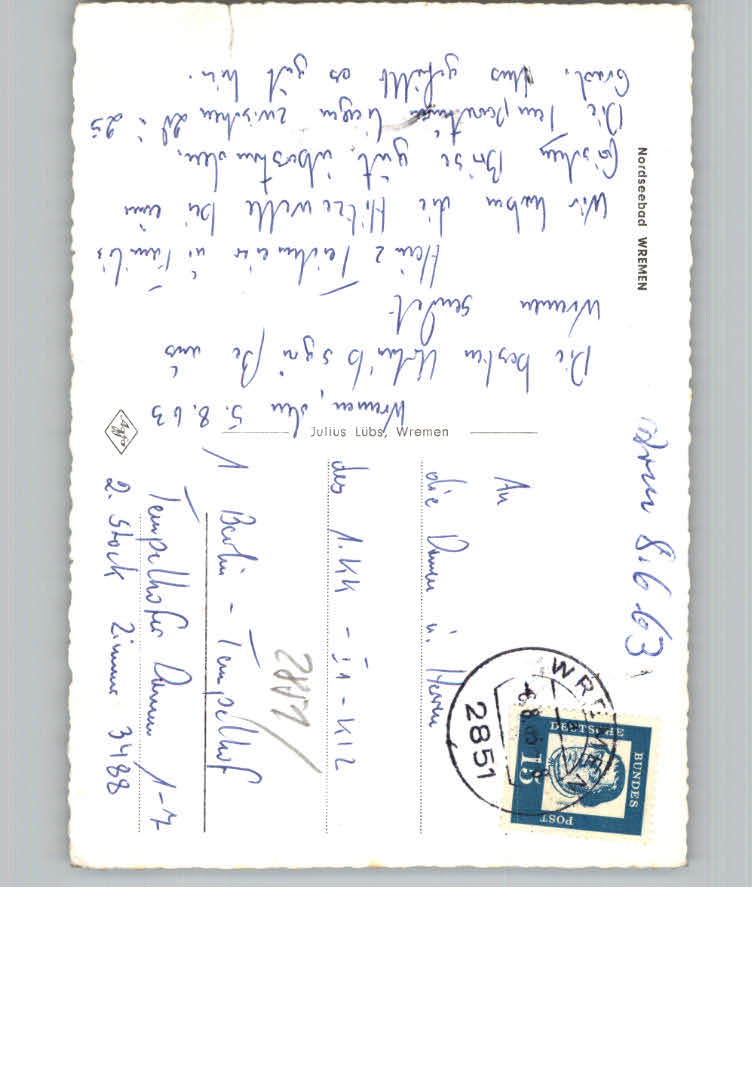 Nordseebad WREMEN
Wremen, den 5.8.63
Die besten Urlaubsgrüße aus
Wremen sendet
Heinz u. Familie
Wir haben die Hitzewelle bei einer
frischen Brise gut überstanden.
Die Temperaturen liegen zwischen 20 u. 25
Grad. Uns gefällt es gut hier.
Julius Lübs, Wremen
Agfa
8.6.63
An
die Damen u. Herrn
des 1.KK - I1 - KI2
1 Berlin - Tempelhof
Tempelhofer Damm 1-7
2. Stock Zimmer 3488
2851
WREMEN
2851
DEUTSCHE
BUNDES
POST
15